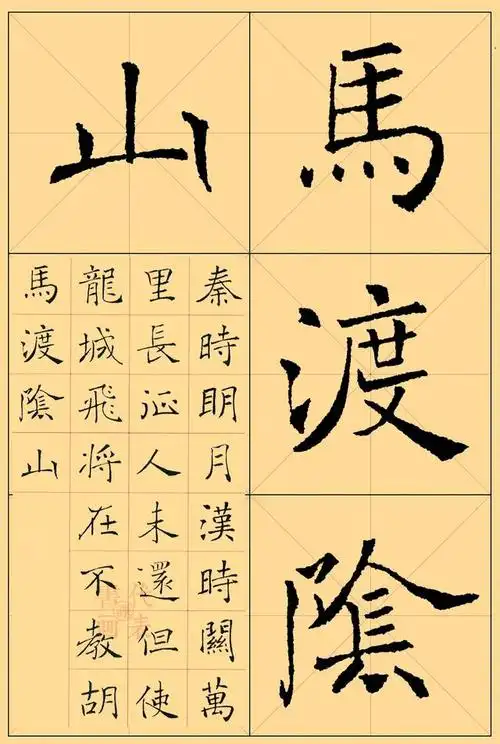 馬渡陰
山
秦時明月漢時關萬
里長征人未還但使
龍城飛將在不教胡
馬渡陰山